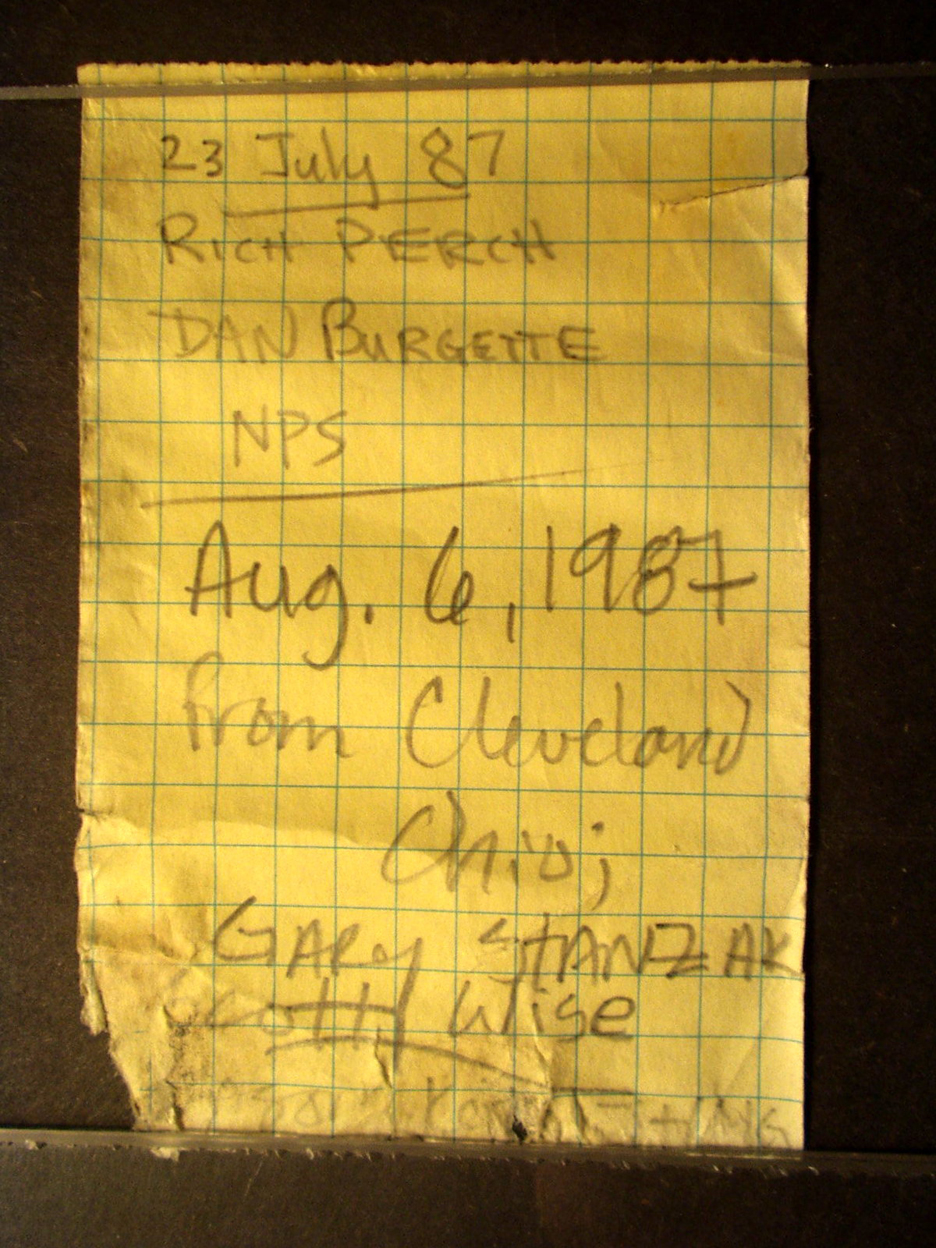 23 July 87
RICH PERCH
DAN BURGETTE
NPS
Aug. 6, 1987
from Cleveland
Ohio;
GARY STANZAK
Scott Wise